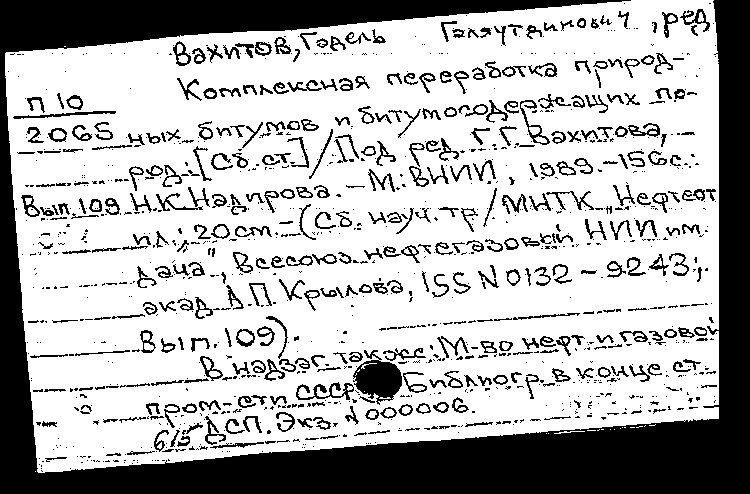 Вахитов, Годель Галяутдинович, ред
П 10
2065
Комплексная переработка природ-
ных битумов и битумосодержащих по-
род: [Сб. ст.] / Под ред. Г.Г. Вахитова,
Вып. 109 Н.К. Надирова. – М.: ВНИИ, 1989. – 156 с.:
ил.; 20 см. – (Сб. науч. тр / МНТК „Нефтеот
дача", Всесоюз. нефтегазовый НИИ им.
акад. А.П. Крылова, ISSN 0132 – 9243;
Вып. 109).
В надзаг также: М-во нефт. и газовой
пром-сти СССР. Библиогр. в конце ст.
615 ДСП. Экз. N 000006.